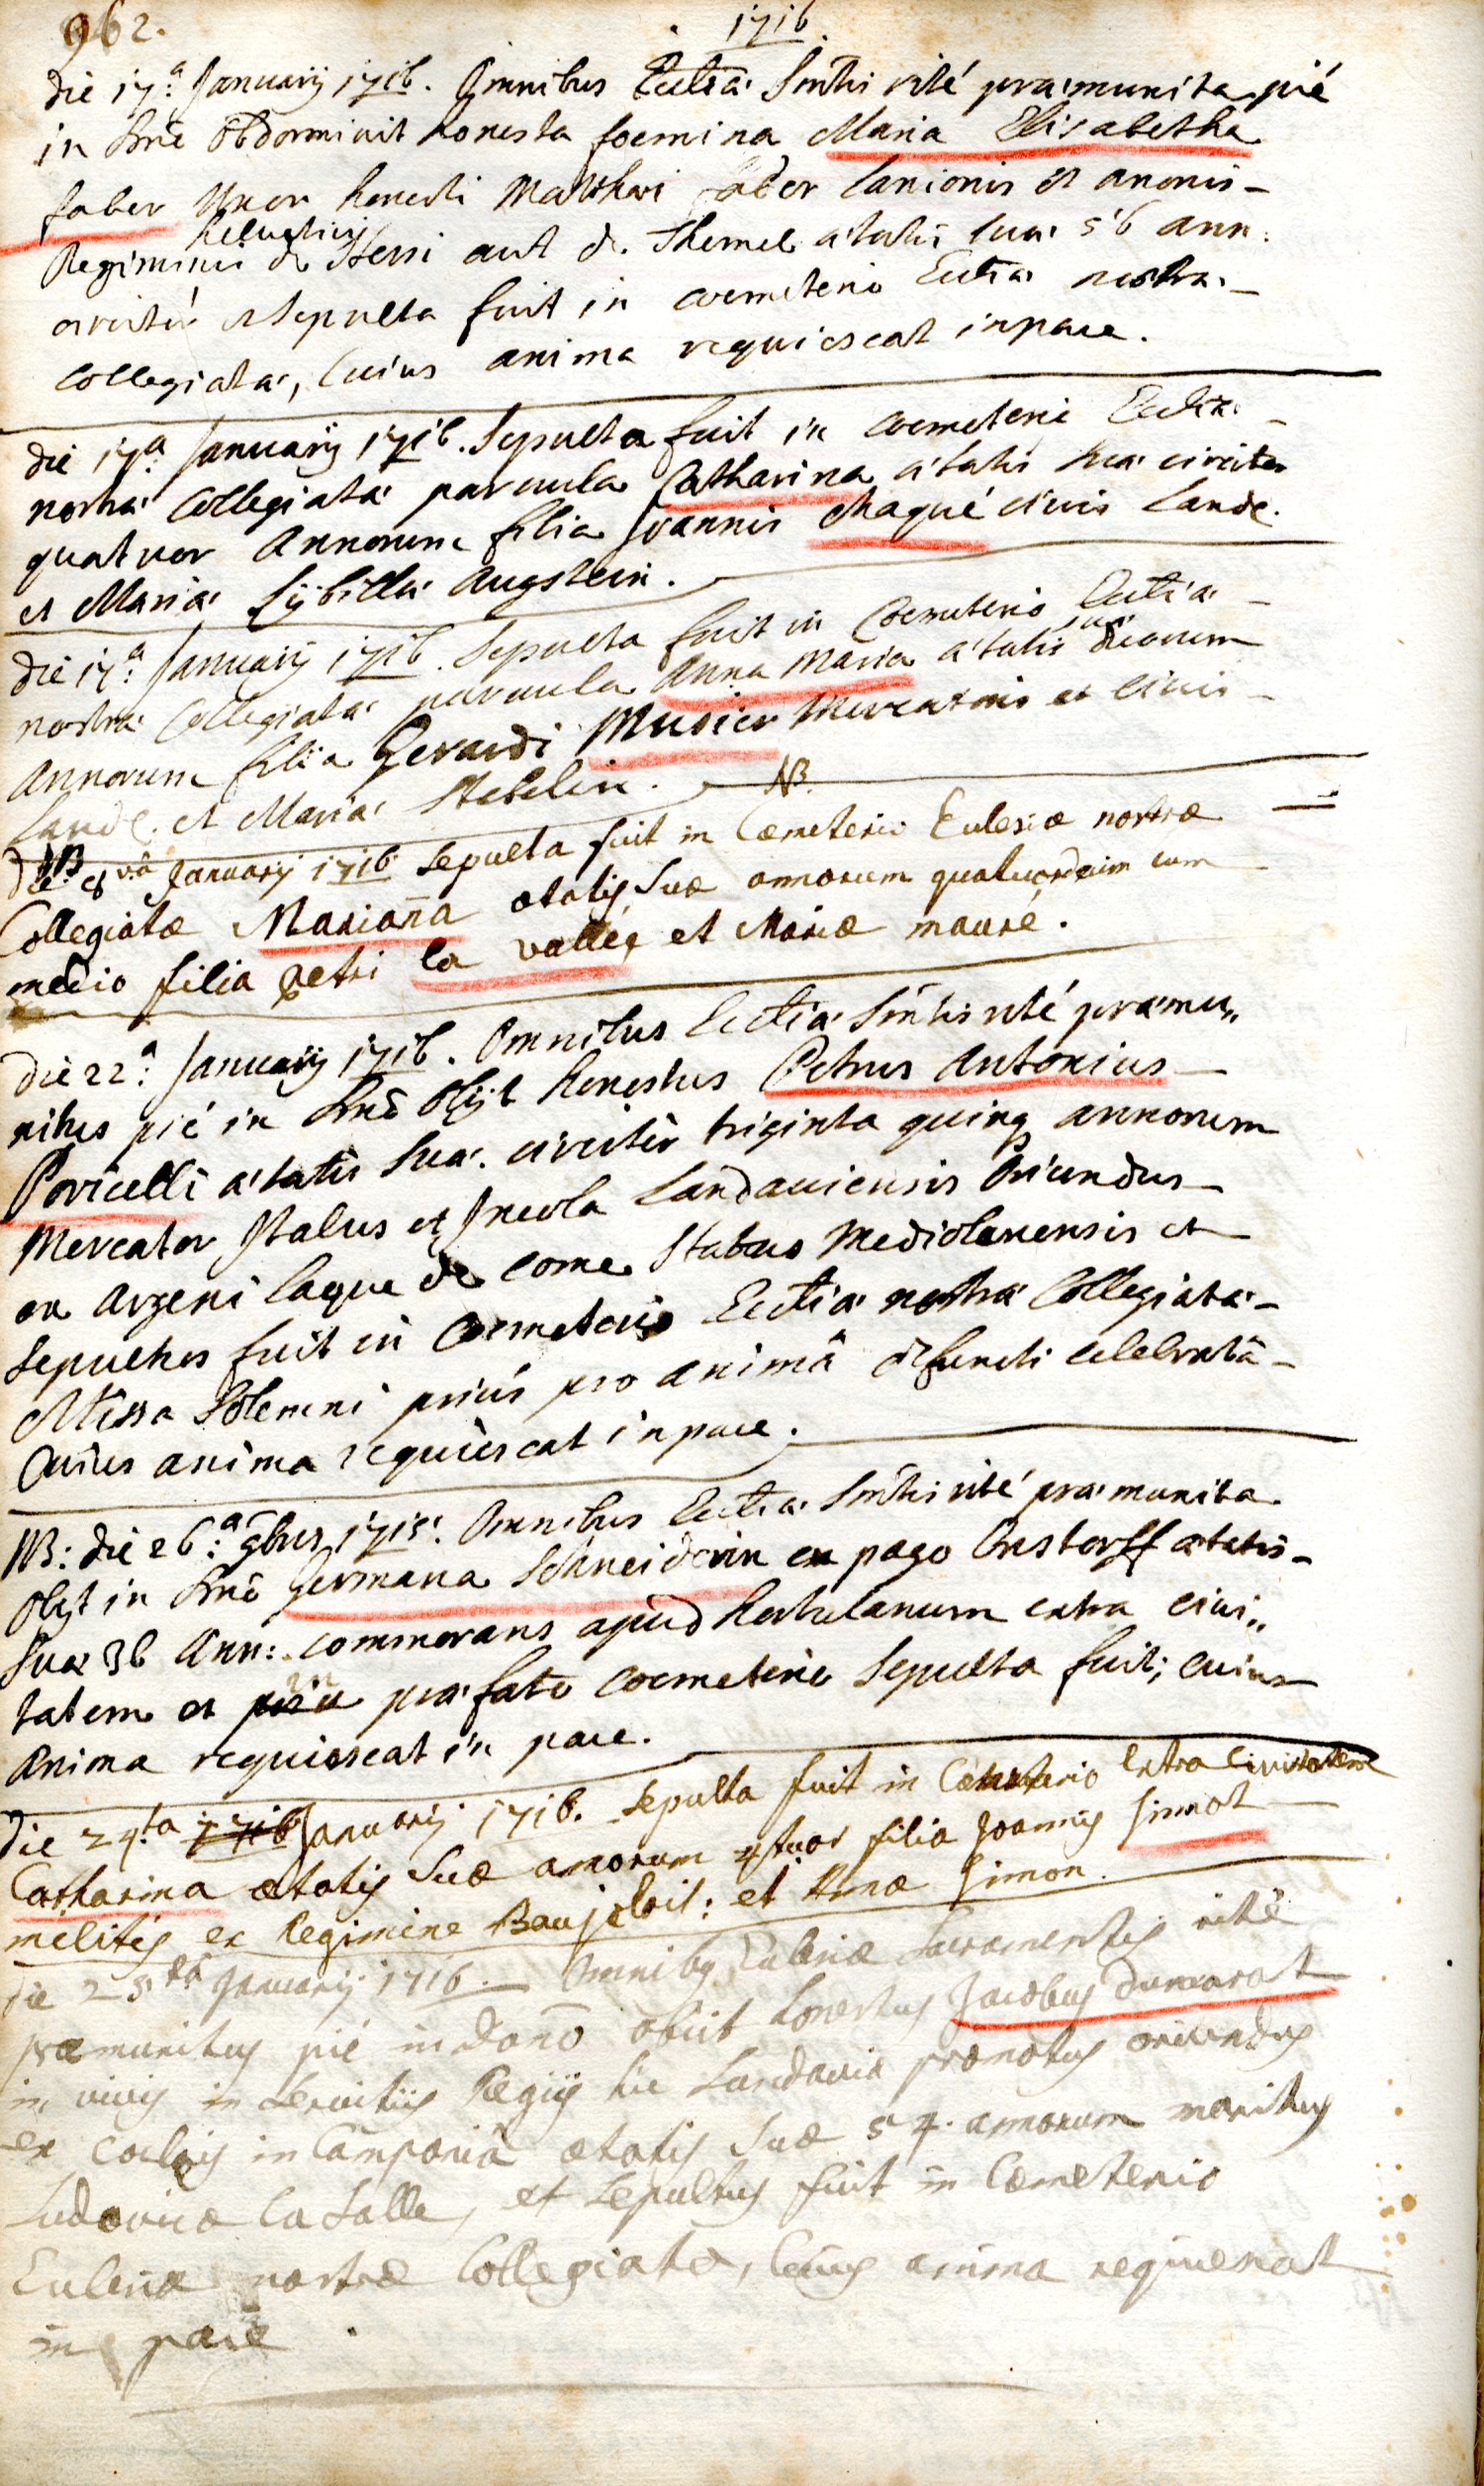 962.
1716.
die 17.a Januarij 1716. Omnibus Ecctiæ Smtis rité præmunita pié
in Dno Obdormivit honesta foemina Maria Elisabetha
faber Uxor honesti Matthæi faber Lanionis et
Helvetiorum
Regiminis de Hessi aut d. ætatis suæ 56 ann:
circitér et Sepulta fuit in coemeterio Ecctiæ nostræ
Collegiatæ, Cuius anima requiescat in pace.
die 17.a Januarij 1716. Sepulta fuit in coemeterio Ecctiæ
nostræ Collegiatæ parvula Catharina ætatis suæ circiter
quatuor Annorum filia Joannis Maqué civis Landc.
et Mariæ Sÿbillæ Augstein.
die 17.a Januarij 1716. Sepulta fuit in Coemeterio Ecctiæ
nostræ Collegiatæ parvula Anna Maria ætatis suæ duorum
Annorum filia Gerardi Musier Mercatoris et Civis
Landc. et Mariæ Stebelin.
NB.
NB
Die 8va Januarij 1716 sepulta fuit in Cæmeterio Eclesiæ nostræ
Collegiatæ Mariana ætatis suæ annorum quatuordecim cum
medio filia Petri la vallée et Mariæ mauré.
die 22.a Januarij 1716. Omnibus Ecctiæ Smtis rité præmu„
nitus pié in Dno Obijt honestus Petrus Antonius
Poricelli ætatis suæ circitér triginta quinq annorum
Mercator Italus et Incola Landaviensis Oriundus
ex Argeni Laque de Come Status Mediolanensis et
Sepultus fuit in Coemeterio Ecctiæ nostræ Collegiatæ
Missa Solemni priús pro animâ defuncti celebratâ
Cuius anima requiescat in pace.
NB: die 26.a 9bris 1715. Omnibus Ecctiæ Smtis rité præmunita
Obijt in Dno Germana Schneiderin ex pago Onstorff ætatis
suæ 36 Ann: commorans apud hortulanum extra civi„
in
tatem et præfato coemeterio Sepulta fuit; cuius
Anima requiescat in pace.
Die 24.ta 1716 Januarij 1716. sepulta fuit in Cæmeterio Extra Civitatem
Catharina ætatis suæ annorum 4tuor filia Joannis Simot
militis ex Regimine Baujoloit: et Annæ Simon.
Die 25ta Januarij 1716. Omnibus Eclesiæ Sacramentis ritè
præmunitus pié in dono obiit honestus Jacobus Dumarat
in vivis in servitiis Regiis hic Landaviæ oriundus
ex in Campaniâ ætatis suæ 54. annorum maritus
Ludovicæ La Salle, et sepultus fuit in Cæmeterio
Eclesiæ nostræ Collegiatæ, Cuius anima requiescat
in pace.